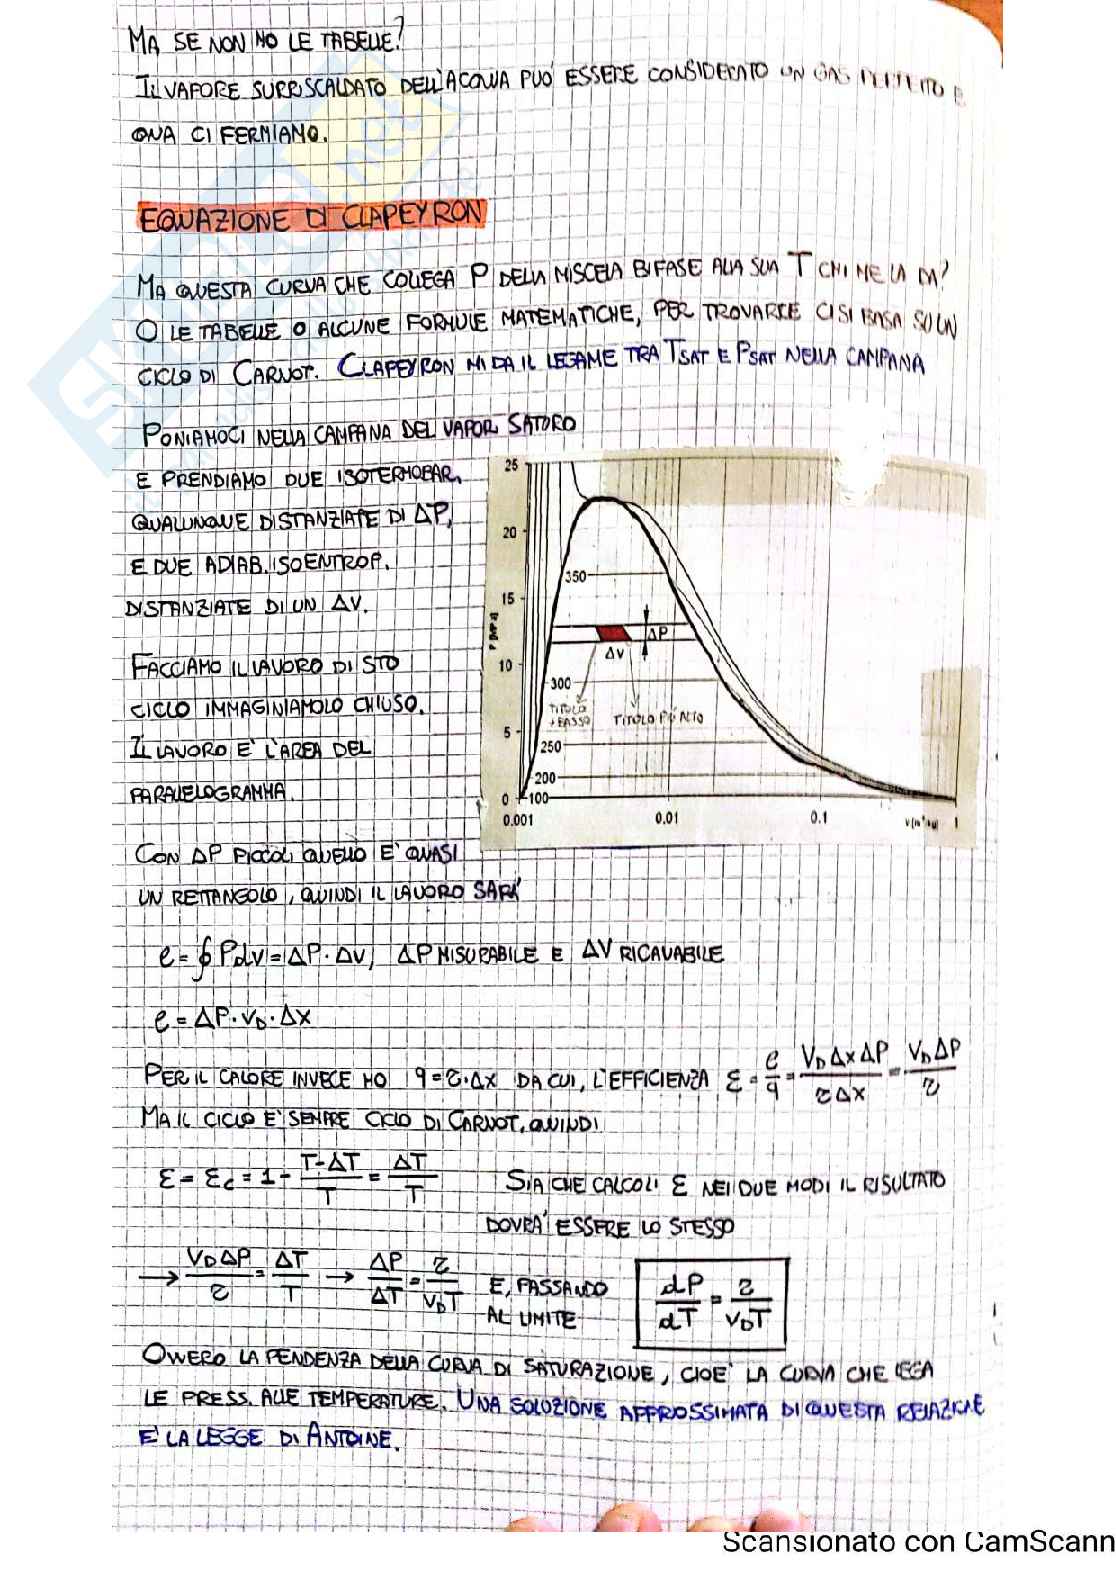 MA SE NON HO LE TABELLE?
IL VAPORE SURRISCALDATO DELL'ACQUA PUO' ESSERE CONSIDERATO UN GAS PERFETTO E
QUA CI FERMIAMO.
EQUAZIONE DI CLAPEYRON
MA QUESTA CURVA CHE COLLEGA P DELLA MISCELA BIFASE ALLA SUA T CHI ME LA DA?
O LE TABELLE O ALCUNE FORMULE MATEMATICHE, PER TROVARLE CI SI BASA SU UN
CICLO DI CARNOT. CLAPEYRON MI DA IL LEGAME TRA TSAT E PSAT NELLA CAMPANA
PONIAMOCI NELLA CAMPANA DEL VAPOR SATURO
E PRENDIAMO DUE ISOTERMOBAR.
QUALUNQUE DISTANZIATE DI ΔP,
E DUE ADIAB. ISOENTROP.
DISTANZIATE DI UN ΔV.
FACCIAMO IL LAVORO DI STO
CICLO IMMAGINIAMOLO CHIUSO.
IL LAVORO E' L'AREA DEL
PARALLELOGRAMMA.
25
20
15
10
5
0
P [MPa]
350
300
250
200
100
ΔP
ΔV
TITOLO + BASSO
TITOLO PIÙ ALTO
0.001
0.01
0.1
1
CON ΔP PICCOLI QUELLO E' QUASI
UN RETTANGOLO, QUINDI IL LAVORO SARA'
ℓ = ∮ PdV = ΔP · ΔV, ΔP MISURABILE E ΔV RICAVABILE
ℓ = ΔP · VD · ΔX
PER IL CALORE INVECE HO q = r · ΔX DA CUI, L'EFFICIENZA ε = ℓ/q = VD ΔX ΔP / r ΔX = VD ΔP / r
MA IL CICLO E' SEMPRE CICLO DI CARNOT, QUINDI
ε = εc = 1 - (T-ΔT)/T = ΔT/T SIA CHE CALCOLI ε NEI DUE MODI IL RISULTATO
DOVRA' ESSERE LO STESSO
→ VD ΔP / r = ΔT/T → ΔP/ΔT = r / VD T E, PASSANDO AL LIMITE dP/dT = r / VD T
OVVERO LA PENDENZA DELLA CURVA DI SATURAZIONE, CIOE' LA CURVA CHE LEGA
LE PRESS. ALLE TEMPERATURE. UNA SOLUZIONE APPROSSIMATA DI QUESTA RELAZIONE
E' LA LEGGE DI ANTOINE.
Scansionato con CamScann